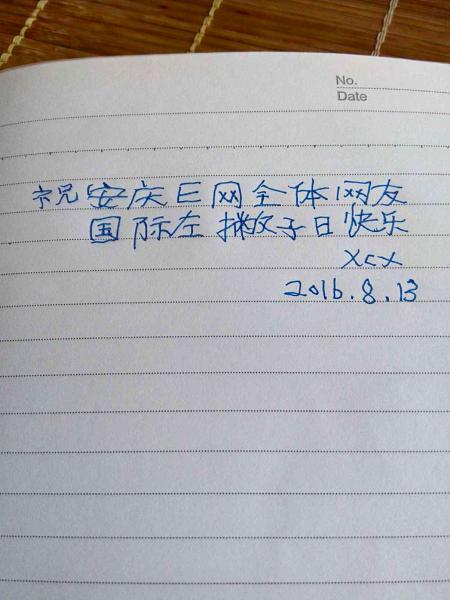 No.
Date
祝安庆E网全体网友
国际左撇子日快乐
xcx
2016.8.13